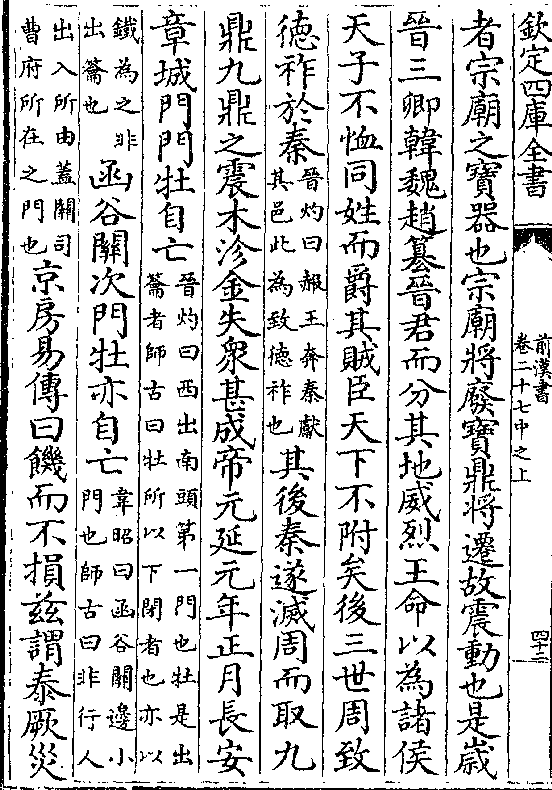 欽定四庫全書
前漢書
卷二十七中之上
四十二
者宗廟之寶器也宗廟將廢寶鼎將遷故震動也是歲
晉三卿韓魏趙篡晉君而分其地威烈王命以為諸侯
天子不恤同姓而爵其賊臣天下不附矣後三世周致
德祚於秦晉灼曰赧王奔秦獻其邑此為致德祚也其後秦遂滅周而取九
鼎九鼎之震木沴金失衆甚成帝元延元年正月長安
章城門門牡自亡晉灼曰西出南頭第一門也牡是出籥者師古曰牡所以下閉者也亦以
鐵為之非出籥也函谷關次門牡亦自亡韋昭曰函谷關邊小門也師古曰非行人
出入所由蓋關司曹府所在之門也京房易傳曰饑而不損兹謂泰厥災